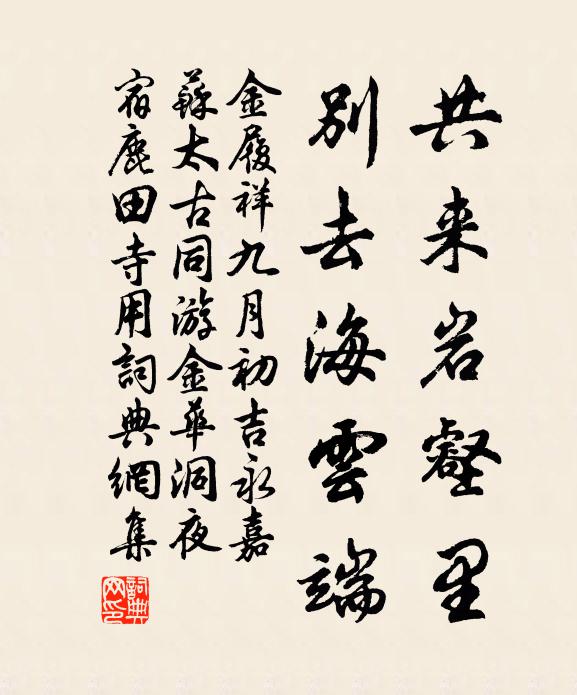 共来岩壑里
別去海雲端
金履祥九月初吉永嘉
蘇太古同游金華洞夜
宿鹿田寺用詞典網集
詞典
网印